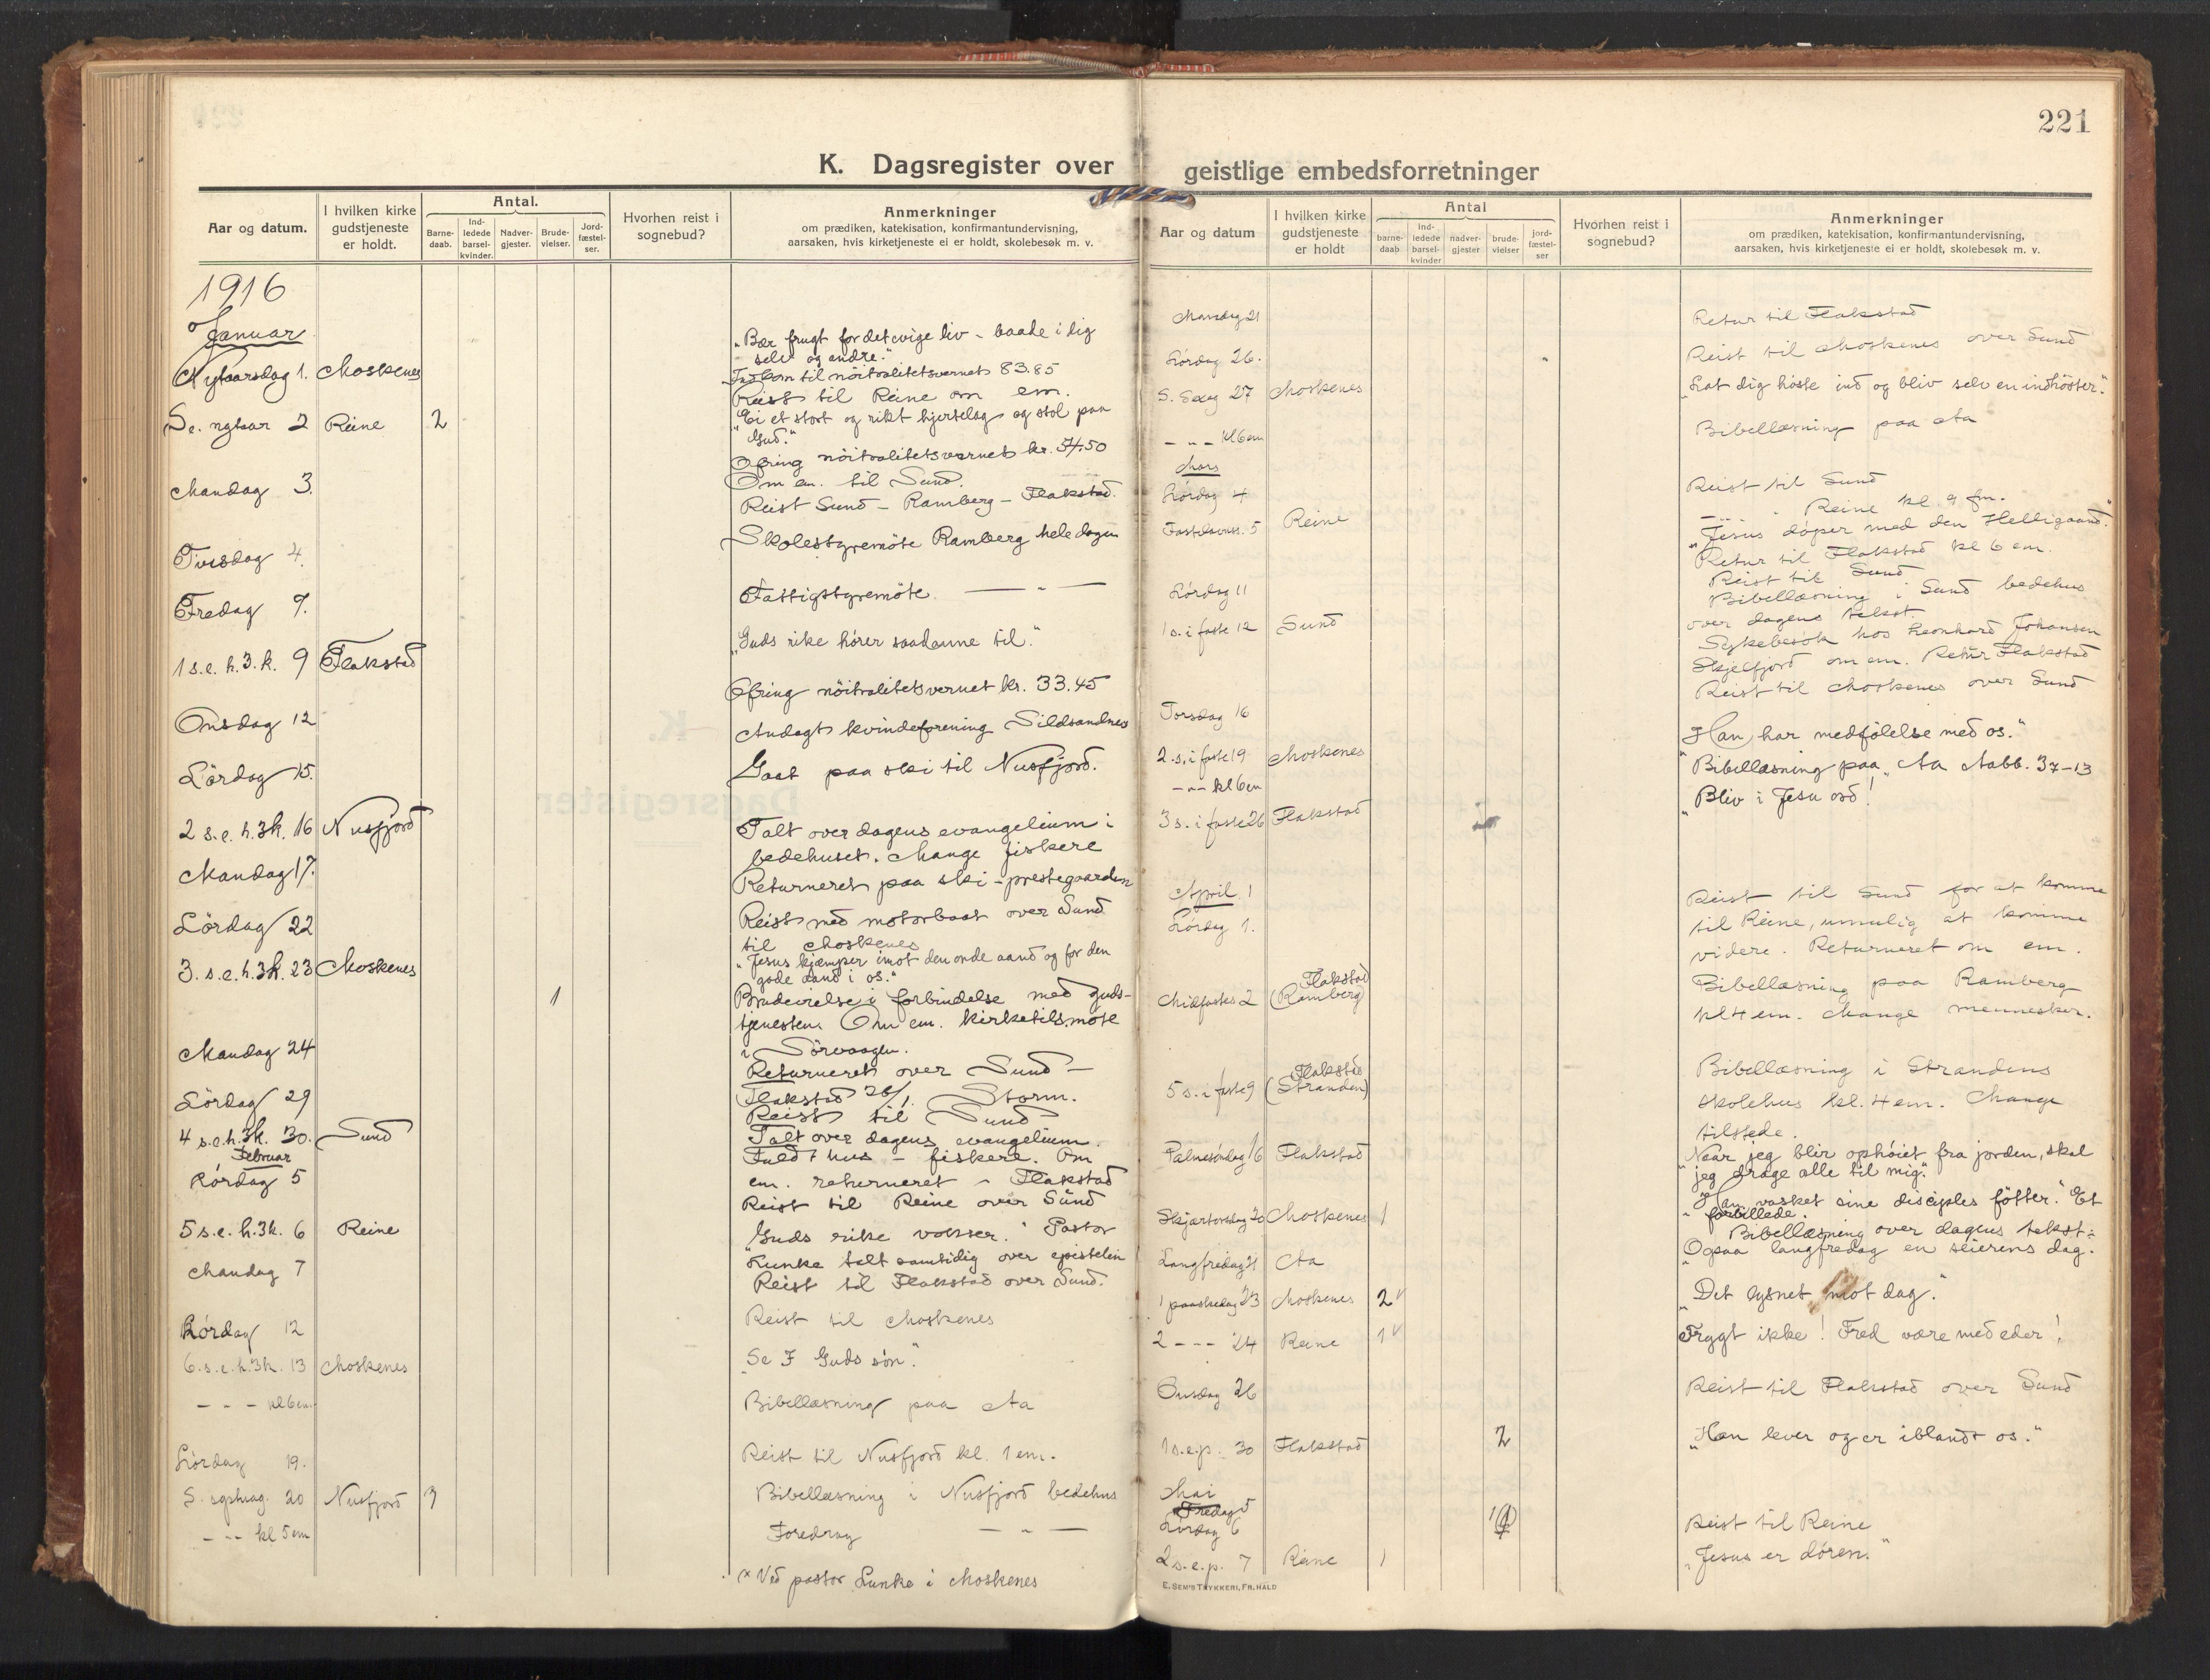 221
K. Dagsregister over geistlige embedsforretninger
Aar og datum.
I hvilken kirke gudstjeneste er holdt.
Antal.
Barne-daab.
Ind-ledede barsel-kvinder.
Nadver-gjester.
Brude-vielser.
Jord-fæstel-ser.
Hvorhen reist i sognebud?
Anmerkninger
om prædiken, katekisation, konfirmantundervisning,
aarsaken, hvis kirketjeneste ei er holdt, skolebesøk m. v.
1916
Januar
"Bær frugt for det evige liv - baade i dig
selv og andre."
Nytaarsdag 1. Moskenes
Indkom til nöitralitetsvernet 83.85
Reist til Reine om em.
Se. nytaar 2 Reine 2
"Ei et stort og rikt hjertelag og stol paa
Gud."
Ofring nöitralitetsvernet kr. 54.50
Om em. til Sund.
Mandag 3.
Reist Sund - Ramberg - Flakstad.
Skolestyremöte Ramberg hele dagen
Tirsdag 4.
Fattigstyremöte. — " —
Fredag 7.
"Guds rike hører saadanne til."
1 s.e.h.3.k. 9 Flakstad
Ofring nöitralitetsvernet kr. 33.45
Onsdag 12
Andagt kvindeforening Sildsandnes
Lördag 15.
Gaat paa ski til Nusfjord.
2 s.e.h.3k. 16 Nusfjord
Talt over dagens evangelium i
bedehuset. Mange fiskere
Mandag 17.
Returneret paa ski - prestegaarden
Lördag 22
Reist med motorbaat over Sund
til Moskenes
3. s.e.h.3k. 23 Moskenes
"Jesus kjæmper imot den onde aand og for den
gode aand i os."
1
Brudevielse i forbindelse med guds-
tjenesten. Om em. kirketils.möte
i Sörvaagen.
Mandag 24
Returneret over Sund -
Flakstad 26/1. Storm.
Lördag 29
Reist til Sund
4 s.e.h.3k. 30. Sund
Talt over dagens evangelium.
Fuldt hus - fiskere. Om
em. returneret - Flakstad
Februar
Lördag 5
Reist til Reine over Sund
5 s.e.h.3k. 6 Reine
"Guds rike vokser." Pastor
Lunke talt samtidig over epistelen
Mandag 7
Reist til Flakstad over Sund.
Lördag 12
Reist til Moskenes
6.s.e.h.3k. 13 Moskenes
"Se I Guds søn."
- - - kl 6 em.
Bibellæsning paa Aa
Lördag 19.
Reist til Nusfjord kl. 1 em.
S. sептuag. 20 Nusfjord 3
Bibellæsning i Nusfjord bedehus
- -- kl 5 em
Foredrag — " —
× Ved pastor Lunke i Moskenes
Aar og datum
I hvilken kirke gudstjeneste er holdt
Antal
barne-daab
Ind-ledede barsel-kvinder
nadver-gjester
brude-vielser
jord-fæstel-ser
Hvorhen reist i sognebud?
Anmerkninger
om prædiken, katekisation, konfirmantundervisning,
aarsaken, hvis kirketjeneste ei er holdt, skolebesøk m. v.
Mandag 21
Retur til Flakstad
Lördag 26.
Reist til Moskenes over Sund
S. Sexag 27 Moskenes
"Lat dig høste ind og bliv selv en indhöster."
- " - kl 6 em
Bibellæsning paa Aa
Mars
Lördag 4
Reist til Sund
— " - Reine kl. 9 fm.
Fastelavnss. 5 Reine
"Jesus døper med den Helligaand."
Retur til Flakstad kl 6 em.
Lördag 11
Reist til Sund
1 s. i faste 12 Sund
Bibellæsning i Sund bedehus
over dagens tekst
Sykebesøk hos Leonhard Johansen
Skjelfjord om em. Retur Flakstad
Torsdag 16
Reist til Moskenes over Sund
2. s. i faste 19 Moskenes
"Han har medfølelse med os."
- -- kl 6 em
Bibellæsning paa Aa
3 s. i faste 26 Flakstad
"Bliv i Jesu ord!
April 1
Lördag 1.
Reist til Sund for at komme
til Reine, umulig at komme
videre. Returneret om em.
Midfastes 2 Flakstad (Ramberg)
Bibellæsning paa Ramberg
kl 4 em. Mange mennesker.
5 s. i faste 9 Flakstad (Stranden)
Bibellæsning i Strandens
skolehus kl. 4 em. Mange
tilstede.
Palmesöndag 16 Flakstad
"Naar jeg blir ophöiet fra jorden, skal
jeg drage alle til mig."
Skjærtorsdag 20 Moskenes 1
"Han vasket sine disciples føtter." Et
forbillede.
Bibellæsning over dagens tekst:
Langfredag 21 Aa
"Ogsaa langfredag en seierens dag.
1 paaskedag 23 Moskenes 2
"Det lysnet mot dag."
2 - - - 24 Reine 1
Frygt ikke! Fred være med eder!
Onsdag 26
Reist til Flakstad over Sund
1 s.e.p. 30 Flakstad 2
"Han lever og er iblandt os."
Mai
Fredag 5
Lördag 6
Reist til Reine
2 s.e.p. 7 Reine 1
"Jesus er døren."
E. SEM'S TRYKKERI, FR.HALD